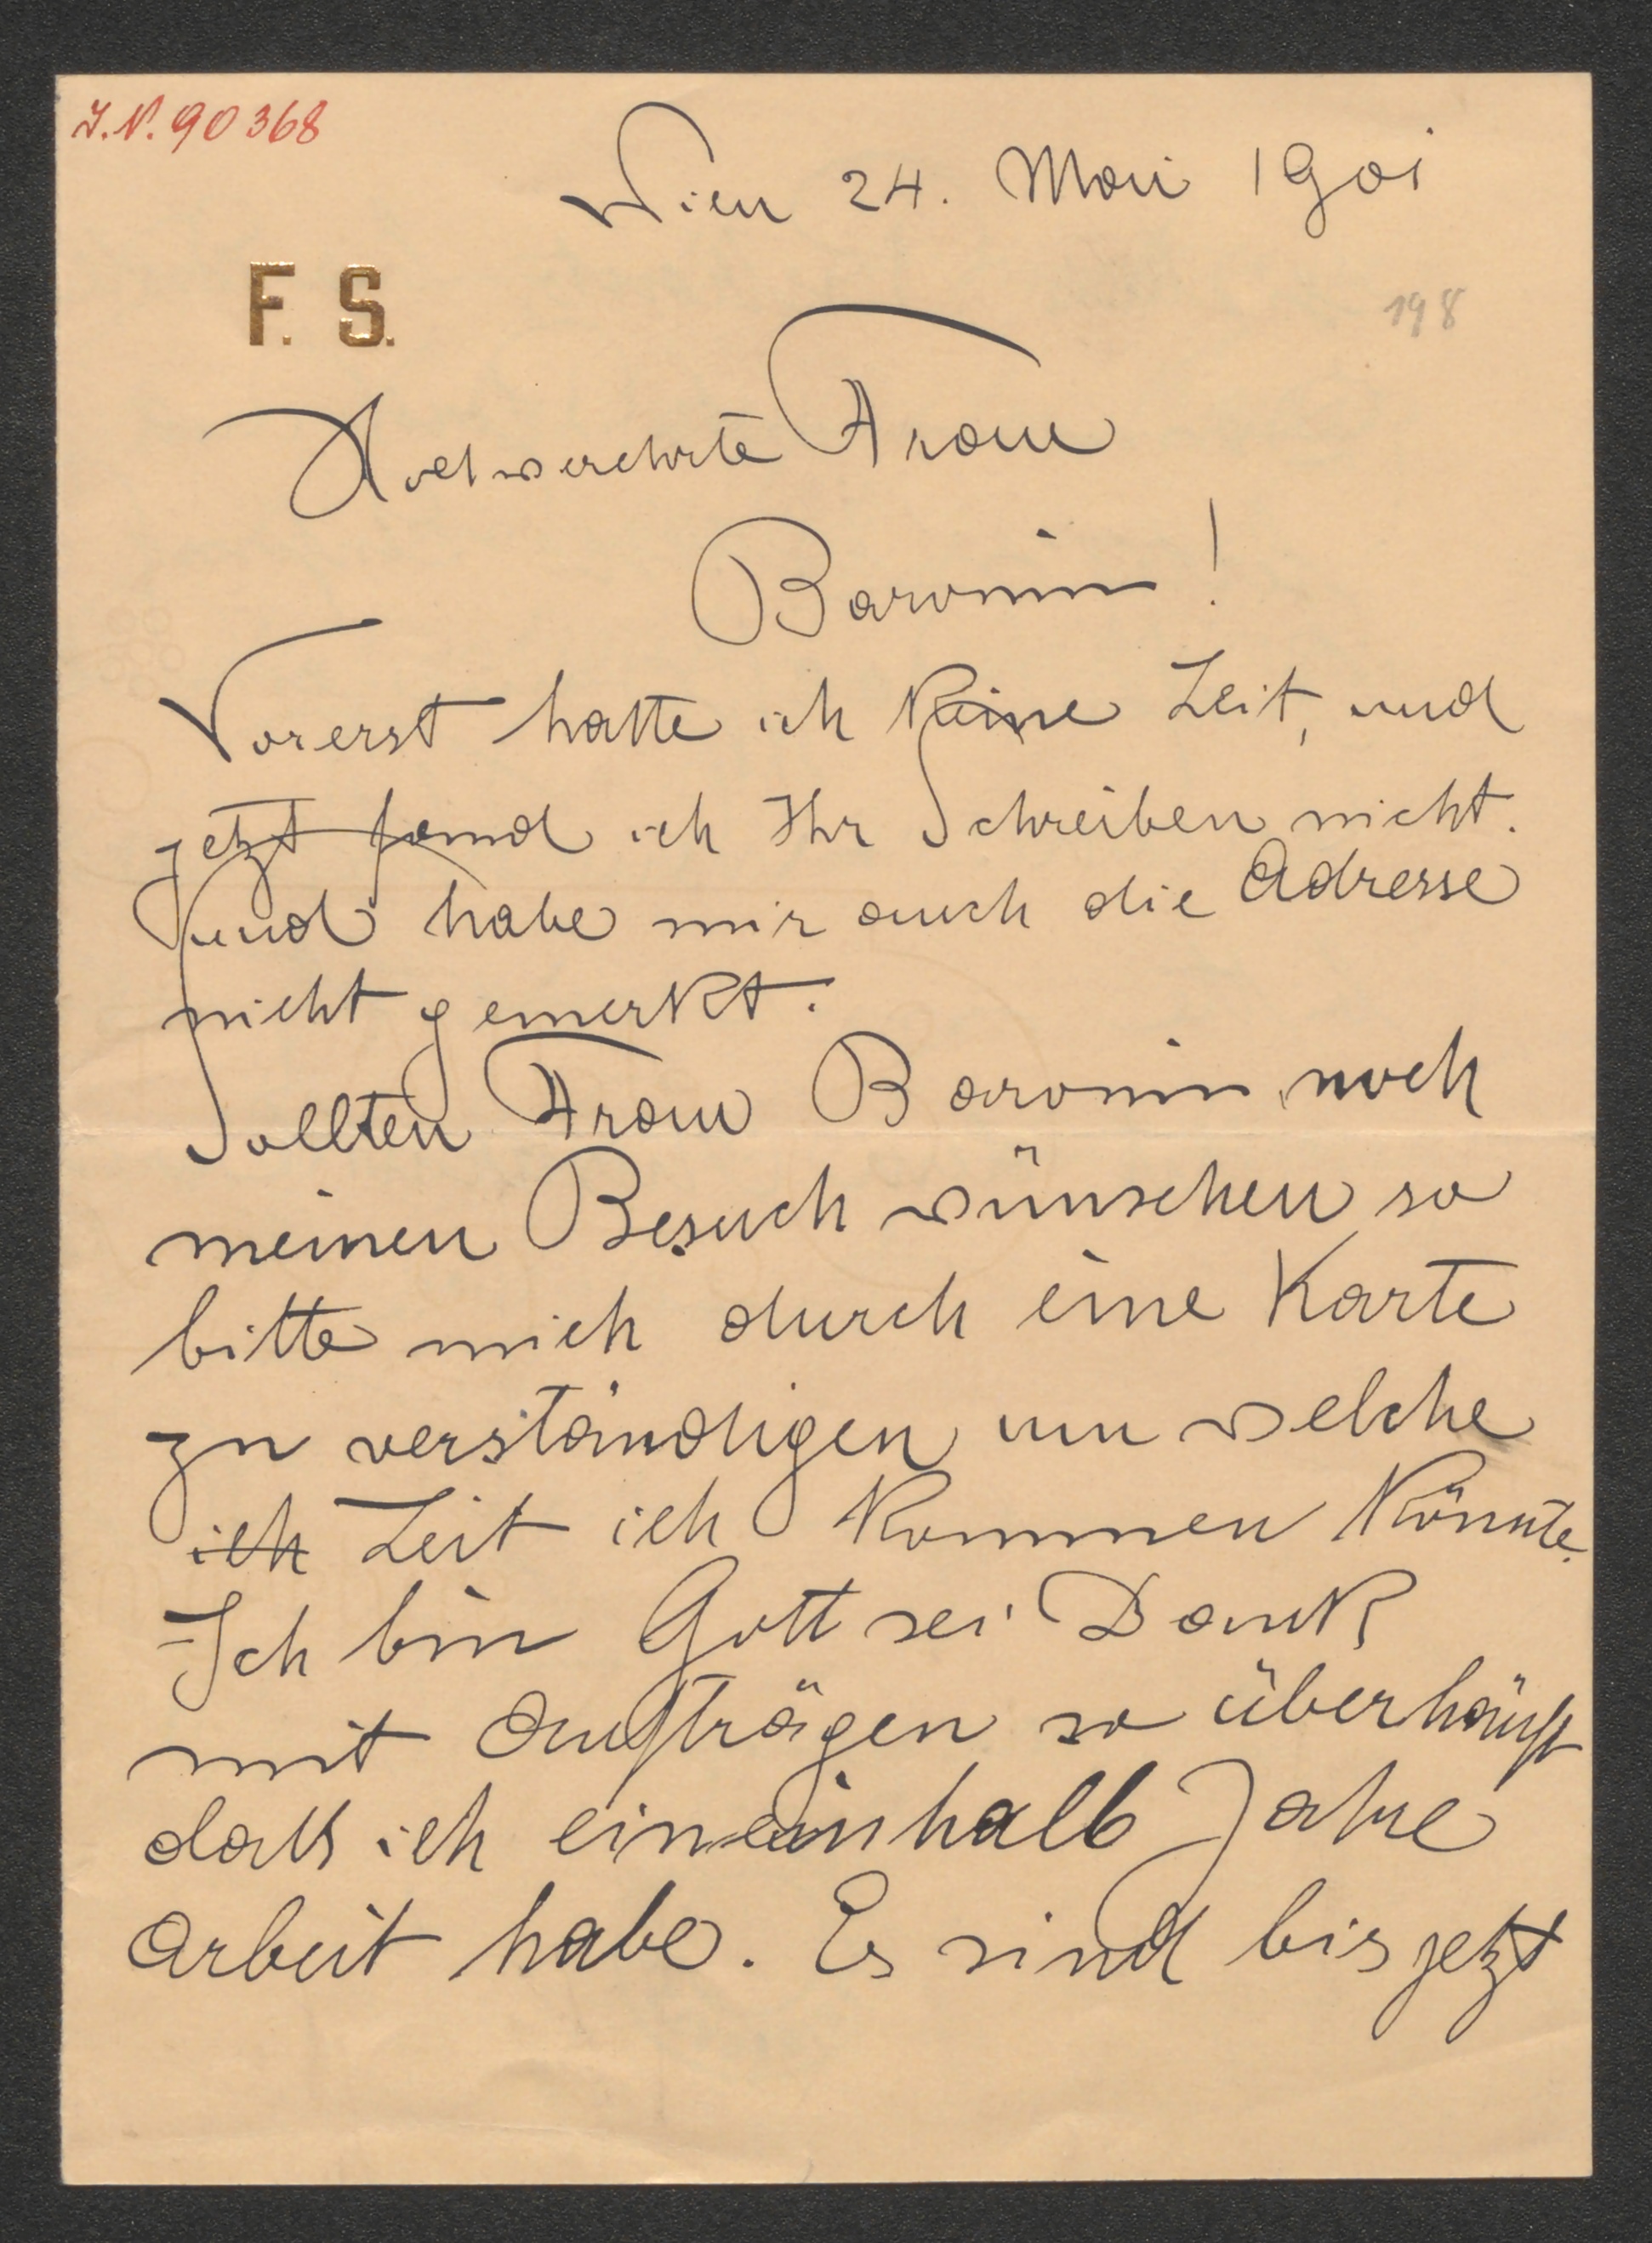 I.N. 90368
Wien 24. Mai 1901
F. S.
198
Hochverehrte Frau
Baronin!
Vorerst hatte ich keine Zeit, und
jetzt fand ich Ihr Schreiben nicht.
und habe mir auch die Adresse
nicht gemerkt.
Sollten Frau Baronin noch
meinen Besuch wünschen so
bitte mich durch eine Karte
zu verständigen um welche
ich Zeit ich kommen könnte.
Ich bin Gott sei Dank
mit Aufträgen so überhäuft
dass ich eineinhalb Jahre
Arbeit habe. Es sind bis jetzt